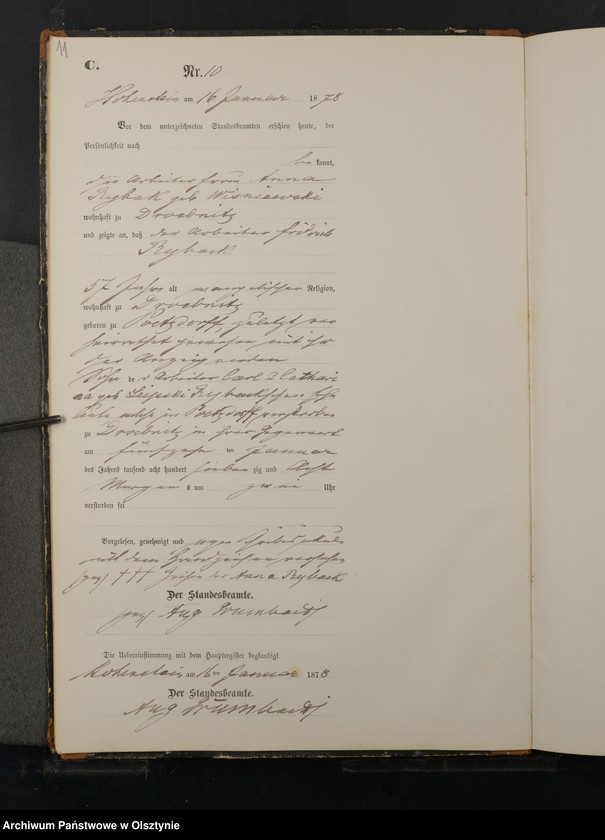 11
C.
Nr. 10
Hohenstein am 16 Januar 1878
Vor dem unterzeichneten Standesbeamten erschien heute, der
Persönlichkeit nach
be kannt,
die Arbeiter frau Anna
Rybak geb Wisniewski
wohnhaft zu Droebnitz
und zeigte an, daß der Arbeiter Friedrich
Ryback
57 Jahre alt evangelischer Religion,
wohnhaft zu Droebnitz
geboren zu Poetzdorff, zuletzt ver
heirathet gewesen mit ihr
der Anzeigenden
Sohn der Arbeiter Carl u Cathari
na geb Rybackschen Ehe
leute, in Poetzdorff verstorben
zu Droebnitz in ihrer Gegenwart
am fünfzehn ten Januar
des Jahres tausend acht hundert sieben zig und Acht
Morgen s um zwei Uhr
verstorben sei
Vorgelesen, genehmigt und wegen
mit dem Handzeichen versehen
gez. +++ Zeichen der Anna Ryback
Der Standesbeamte.
gez Aug
Die Uebereinstimmung mit dem Hauptregister beglaubigt.
Hohenstein am 16 ten Januar 1878
Der Standesbeamte.
Aug
Archiwum Państwowe w Olsztynie